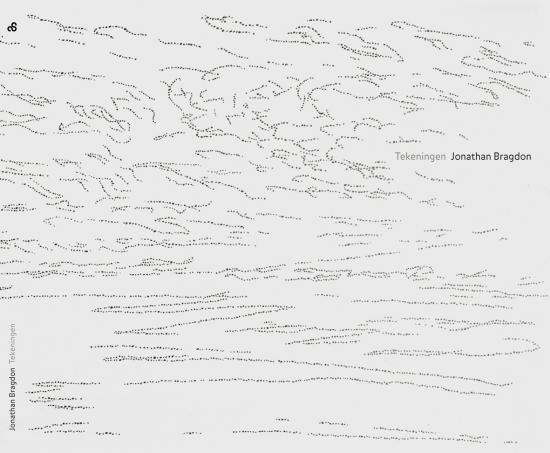 Tekeningen Jonathan Bragdon
Jonathan Bragdon Tekeningen